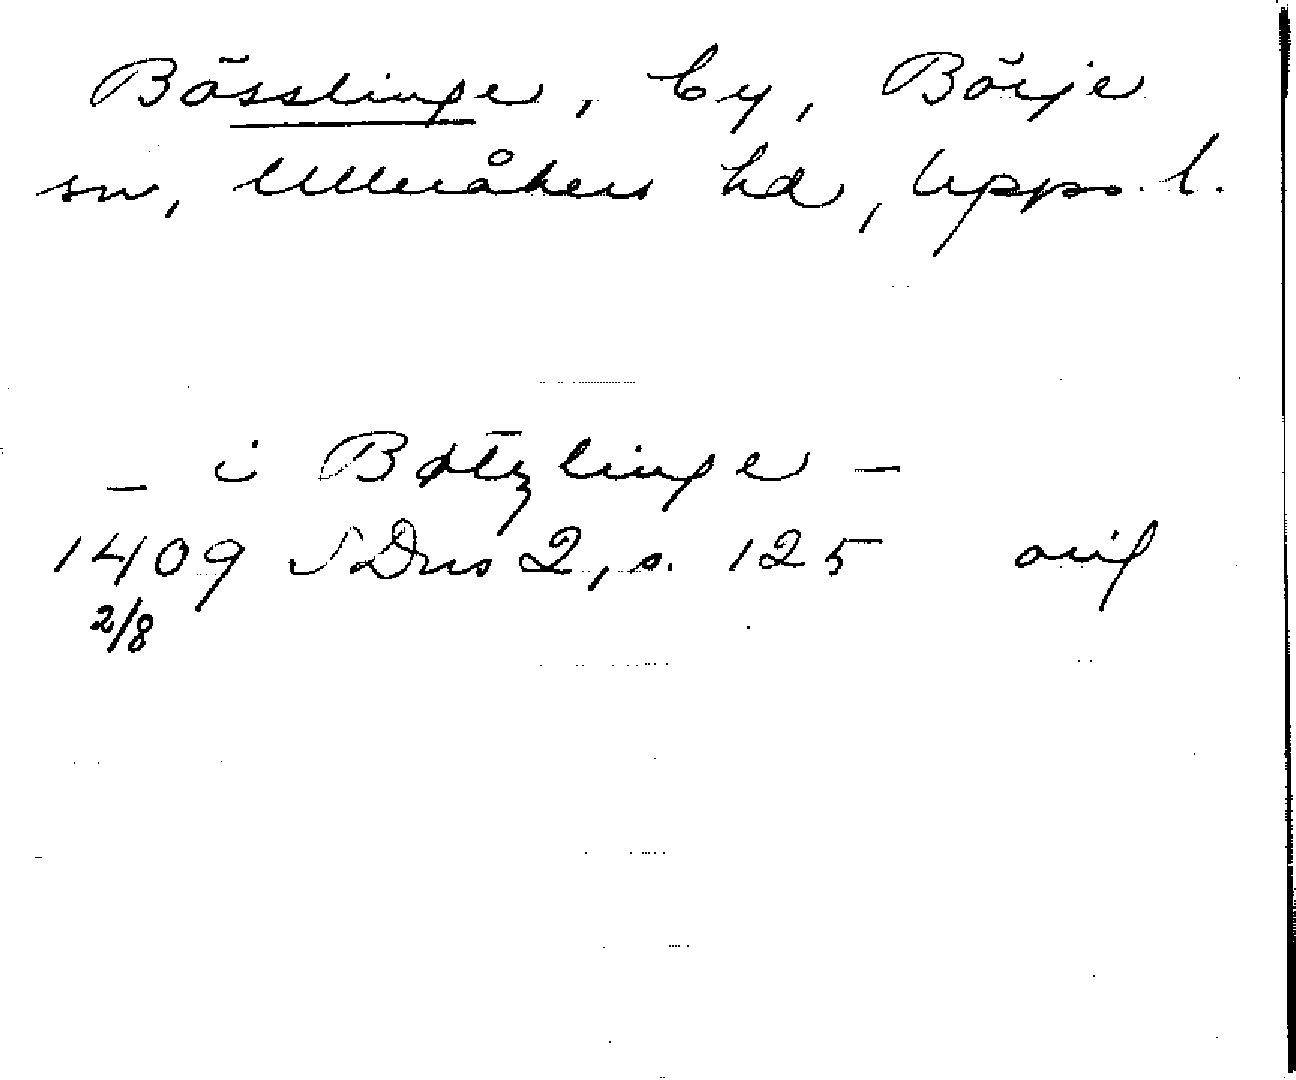 Bösslinge, by, Börje
sn, Ulleråkers hd, Upps. l.
– i Bøtzlinge –
1409 SDns 2, s. 125 orig
2/8